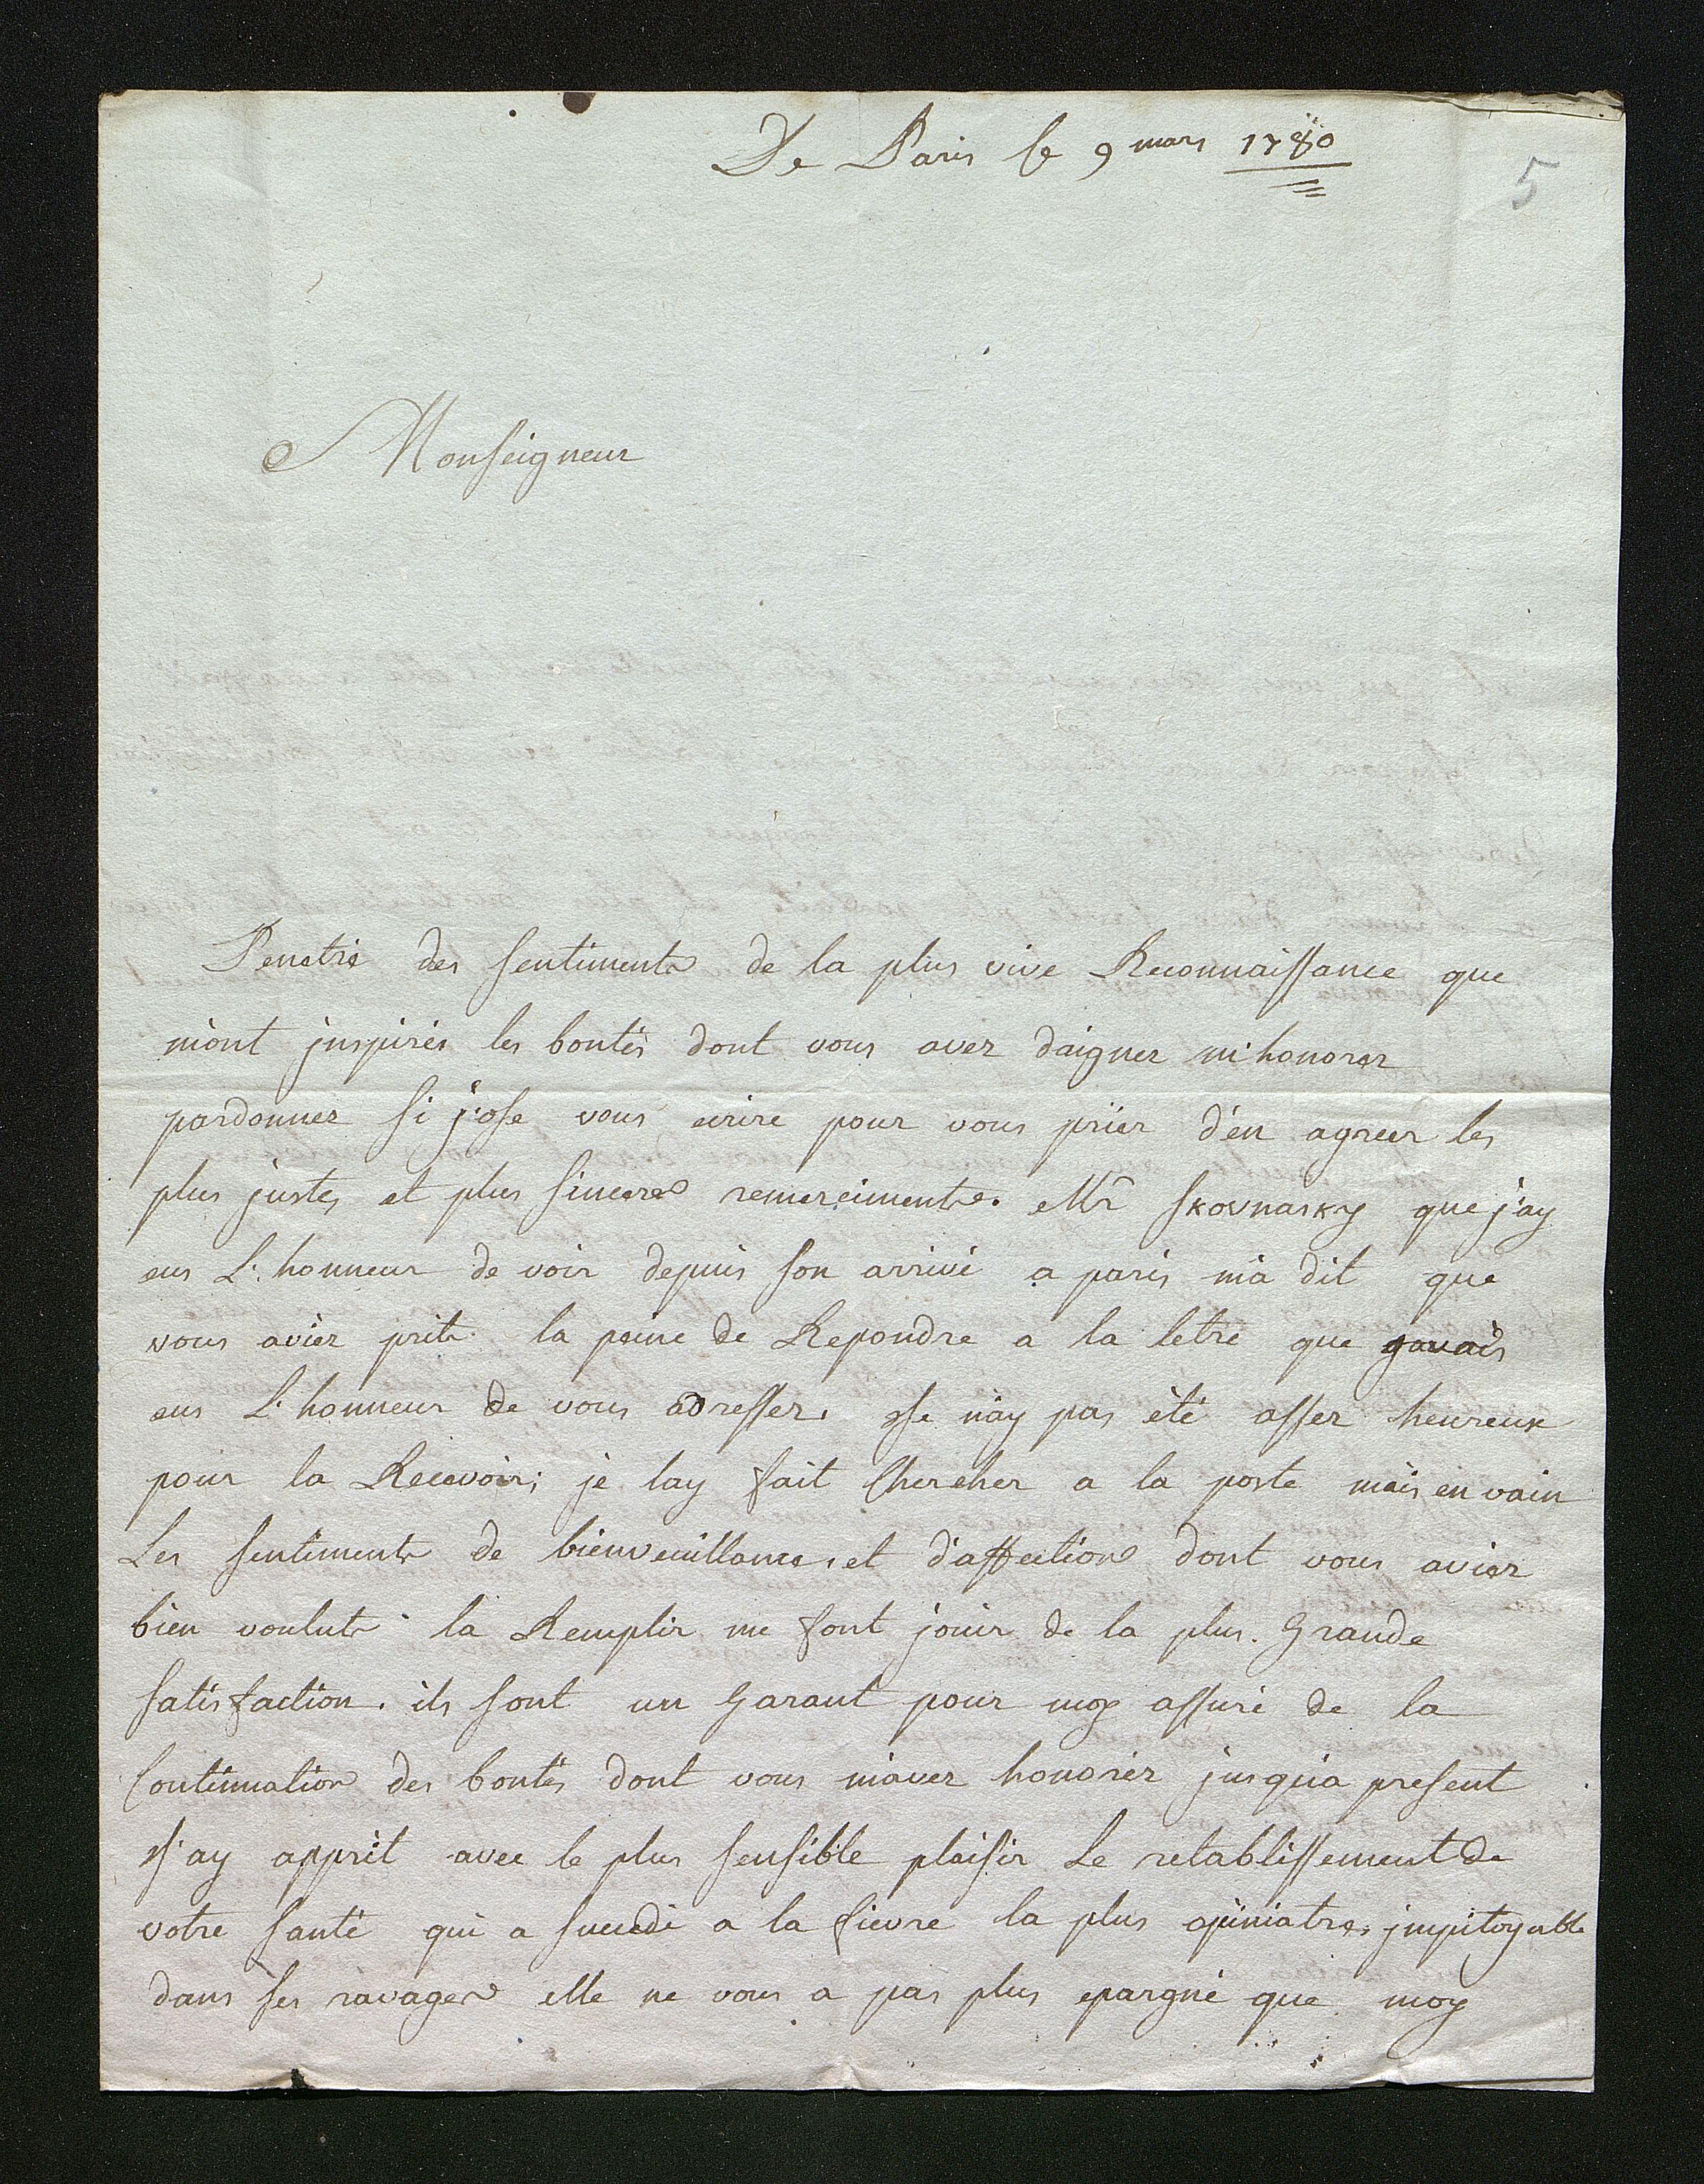 De Paris le 9 mars 1780
5
Monseigneur
Penetré des sentiments de la plus vive Reconnaissance que
m'ont jnspirés les bontés dont vous avez daigner m'honorer
pardonnez si j'ose vous ecrire pour vous prier d'en agreer les
plus justes et plus sinceres remerciments. Mr Skovnasky que j'ay
eus L'honneur de voir depuis son arrivé a paris m'a dit que
vous aviez prits la peine de Repondre a la letre que javais
eus L'honneur de vous adresser. Je n'ay pas été assez heureux
pour la Recevoir; je lay fait Chercher a la poste mais en vain
Les sentiments de bienveuillance, et d'affection dont vous aviez
bien vouluts la Remplir me font jouir de la plus Grande
satisfaction. ils sont un Garant pour moy assuré de la
Continuation des bontés dont vous m'avez honorér jusqu'a present
J'ay apprit avec le plus sensible plaisir Le retablissement de
votre santé qui a succedé a la fievre la plus opiniatre, jmpitoyable
dans ses ravages elle ne vous a pas plus epargné que moy